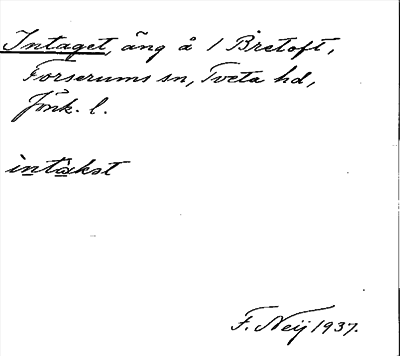 Intaget, äng å 1 Bretoft,
Forserums sn, Tveta hd,
Jönk. l.
ìntàkst
F. Neij 1937.